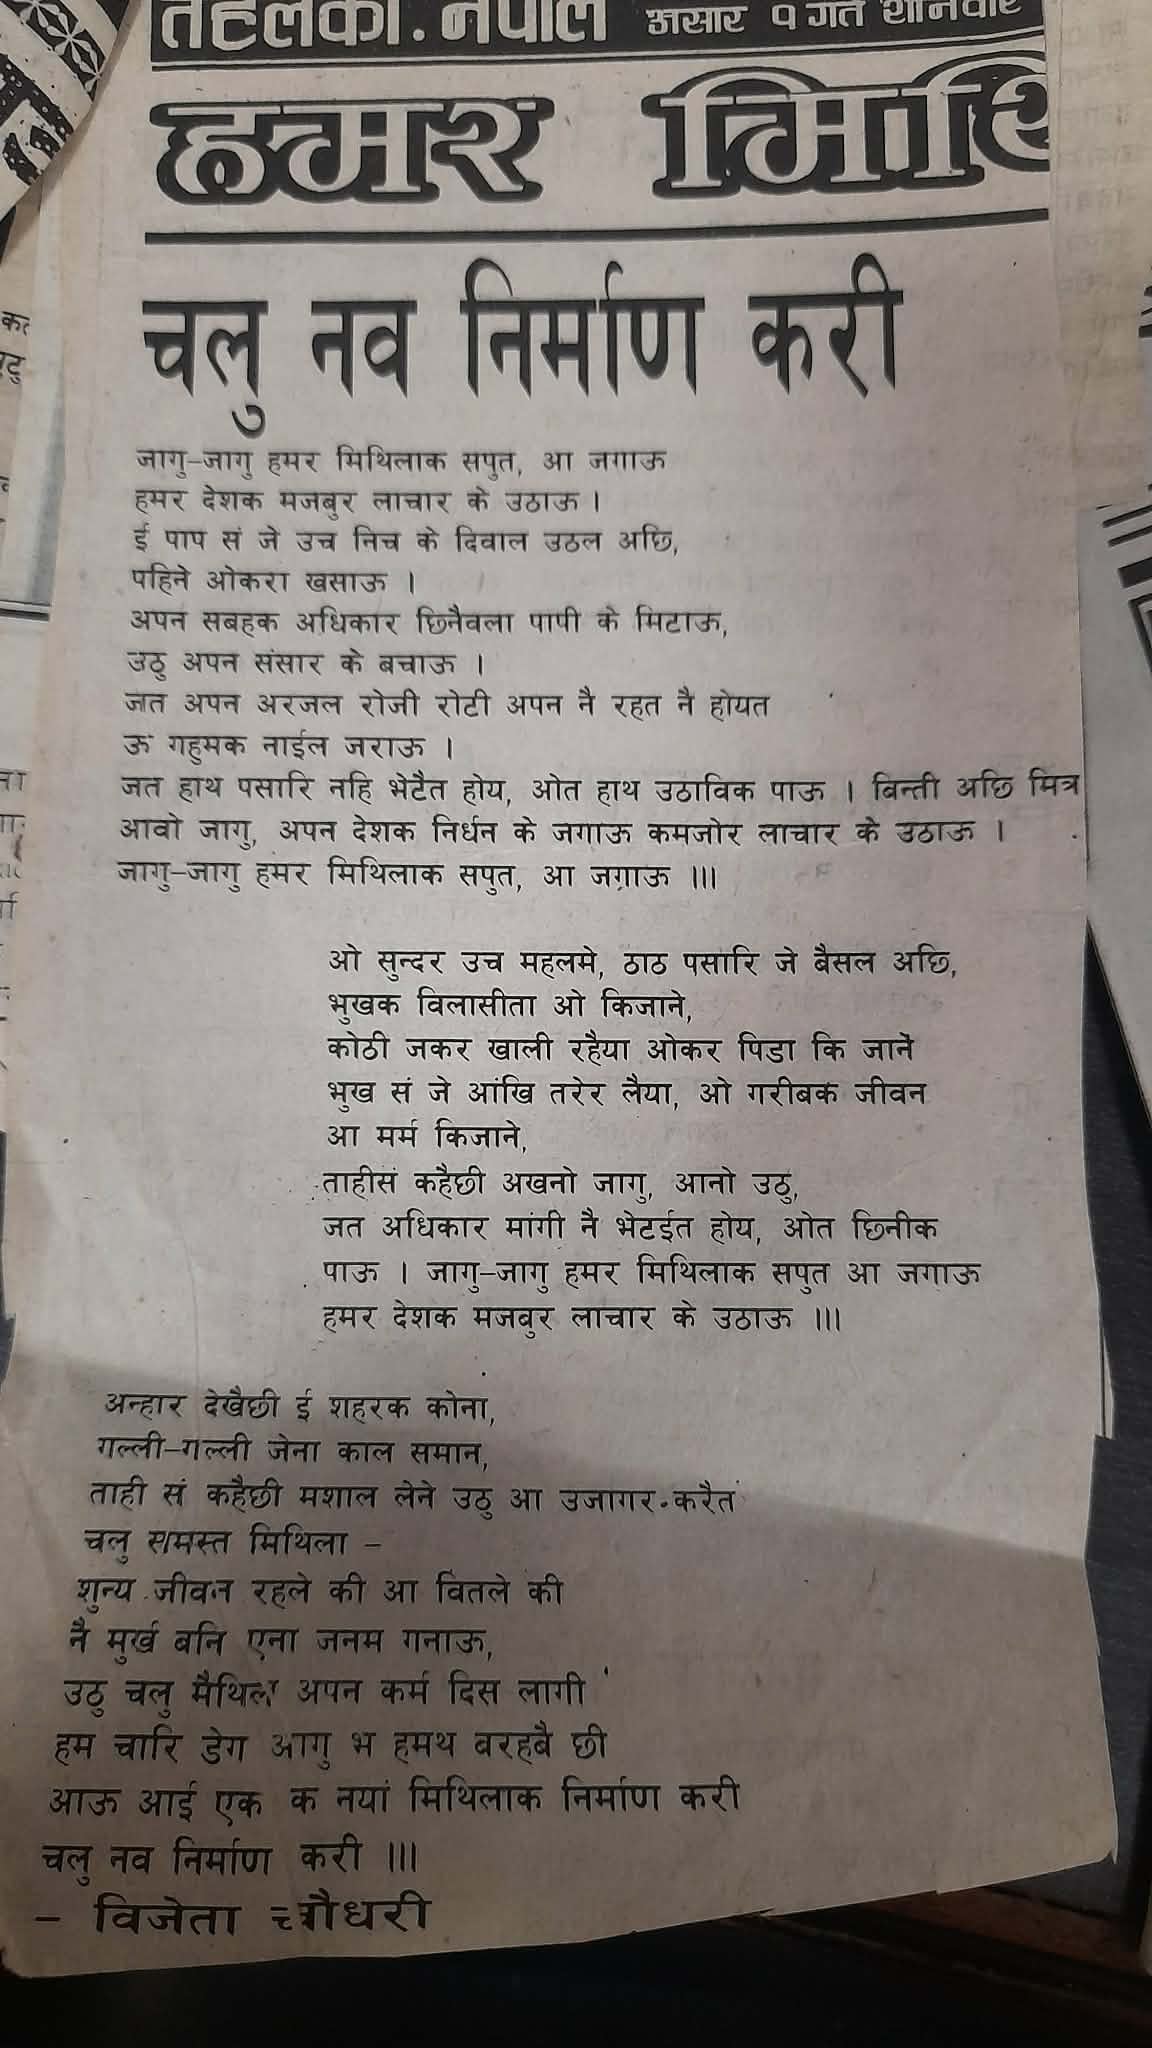 तहलका. नेपाल असार १ गते शनिवार
हमर
चलु नव निर्माण करी
जागु-जागु हमर मिथिलाक सपुत, आ जगाऊ
हमर देशक मजबुर लाचार के उठाऊ ।
ई पाप सं जे उच निच के दिवाल उठल अछि,
पहिने ओकरा खसाऊ ।
अपन सबहक अधिकार छिनैवला पापी के मिटाऊ,
उठु अपन संसार के बचाऊ ।
जत अपन अरजल रोजी रोटी अपन नै रहत नै होयत
ऊ गहुमक नाईल जराऊ ।
जत हाथ पसारि नहि भेटैत होय, ओत हाथ उठाविक पाऊ । विन्ती अछि मित्र
आवो जागु, अपन देशक निर्धन के जगाऊ कमजोर लाचार के उठाऊ ।
जागु-जागु हमर मिथिलाक सपुत, आ जगाऊ ।।।
ओ सुन्दर उच महलमे, ठाठ पसारि जे बैसल अछि,
भुखक विलासीता ओ किजाने,
कोठी जकर खाली रहैया ओकर पिडा कि जाने
भुख सं जे आंखि तरेर लैया, ओ गरीबक जीवन
आ मर्म किजाने,
ताहीसं कहैछी अखनो जागु, आनो उठु,
जत अधिकार मांगी नै भेटईत होय, ओत छिनीक
पाऊ । जागु-जागु हमर मिथिलाक सपुत आ जगाऊ
हमर देशक मजबुर लाचार के उठाऊ ।।।
अन्हार देखैछी ई शहरक कोना,
गल्ली-गल्ली जेना काल समान,
ताही सं कहैछी मशाल लेने उठु आ उजागर करैत
चलु समस्त मिथिला -
शुन्य जीवन रहले की आ वितले की
नै मुर्ख बनि एना जनम गनाऊ,
उठु चलु मैथिल अपन कर्म दिस लागी
हम चारि डेग आगु भ हमथ बरहबै छी
आऊ आई एक क नयां मिथिलाक निर्माण करी
चलु नव निर्माण करी ।।।
- विजेता चौधरी